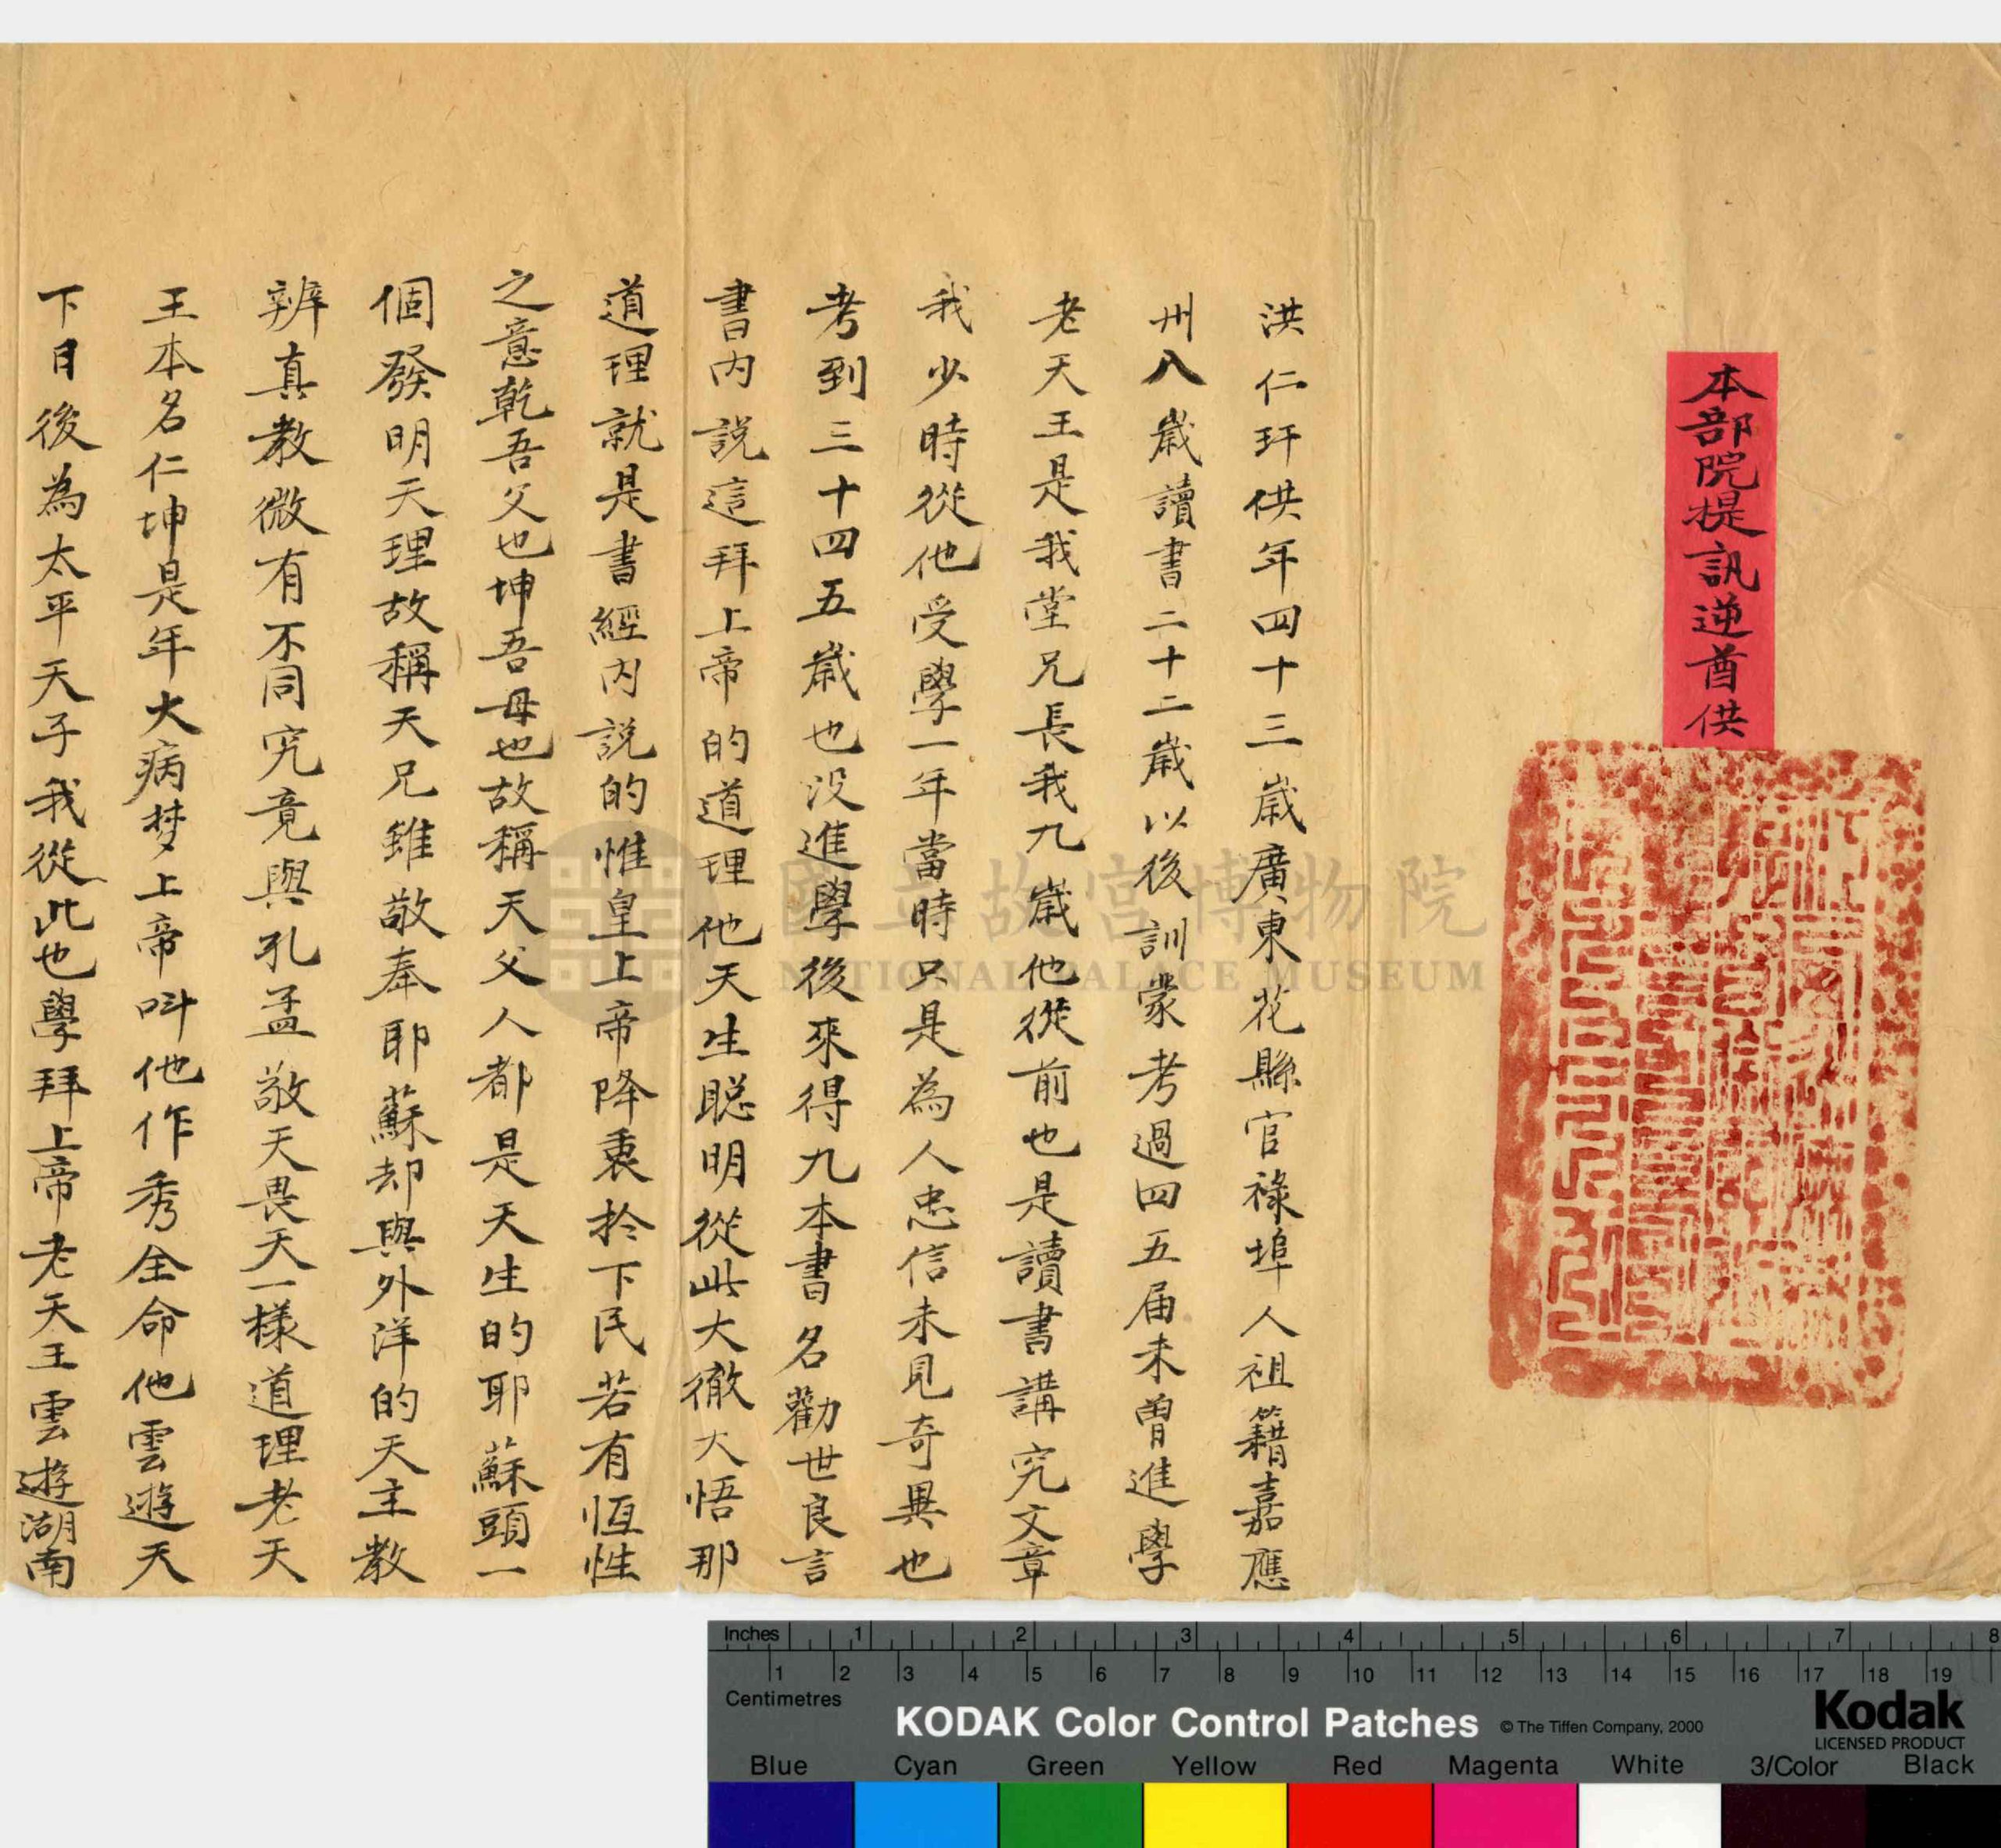 本部院提訊逆酋供
洪仁玕供年四十三歲廣東花縣官祿埠人祖籍嘉應
州八歲讀書二十二歲以後訓蒙考過四五届未曾進學
老天王是我堂兄長我九歲他從前也是讀書講究文章
我少時從他受學一年當時只是為人忠信未見奇異也
考到三十四五歲也沒進學後來得九本書名勸世良言
書內說這拜上帝的道理他天生聰明從此大徹大悟那
道理就是書經內說的惟皇上帝降衷於下民若有恆性
之意乾吾父也坤吾母也故稱天父人都是天生的耶蘇頭一
個發明天理故稱天兄雖敬奉耶蘇却與外洋的天主教
辨真教微有不同究竟與孔孟敬天畏天一樣道理老天
王本名仁坤是年大病梦上帝呌他作秀全命他雲遊天
下日後為太平天子我從此也學拜上帝老天王雲遊湖南
國立故宮博物院
NATIONAL PALACE MUSEUM
Inches 1 2 3 4 5 6 7 8
1 2 3 4 5 6 7 8 9 10 11 12 13 14 15 16 17 18 19
Centimetres
KODAK Color Control Patches © The Tiffen Company, 2000
Kodak
LICENSED PRODUCT
Blue Cyan Green Yellow Red Magenta White 3/Color Black